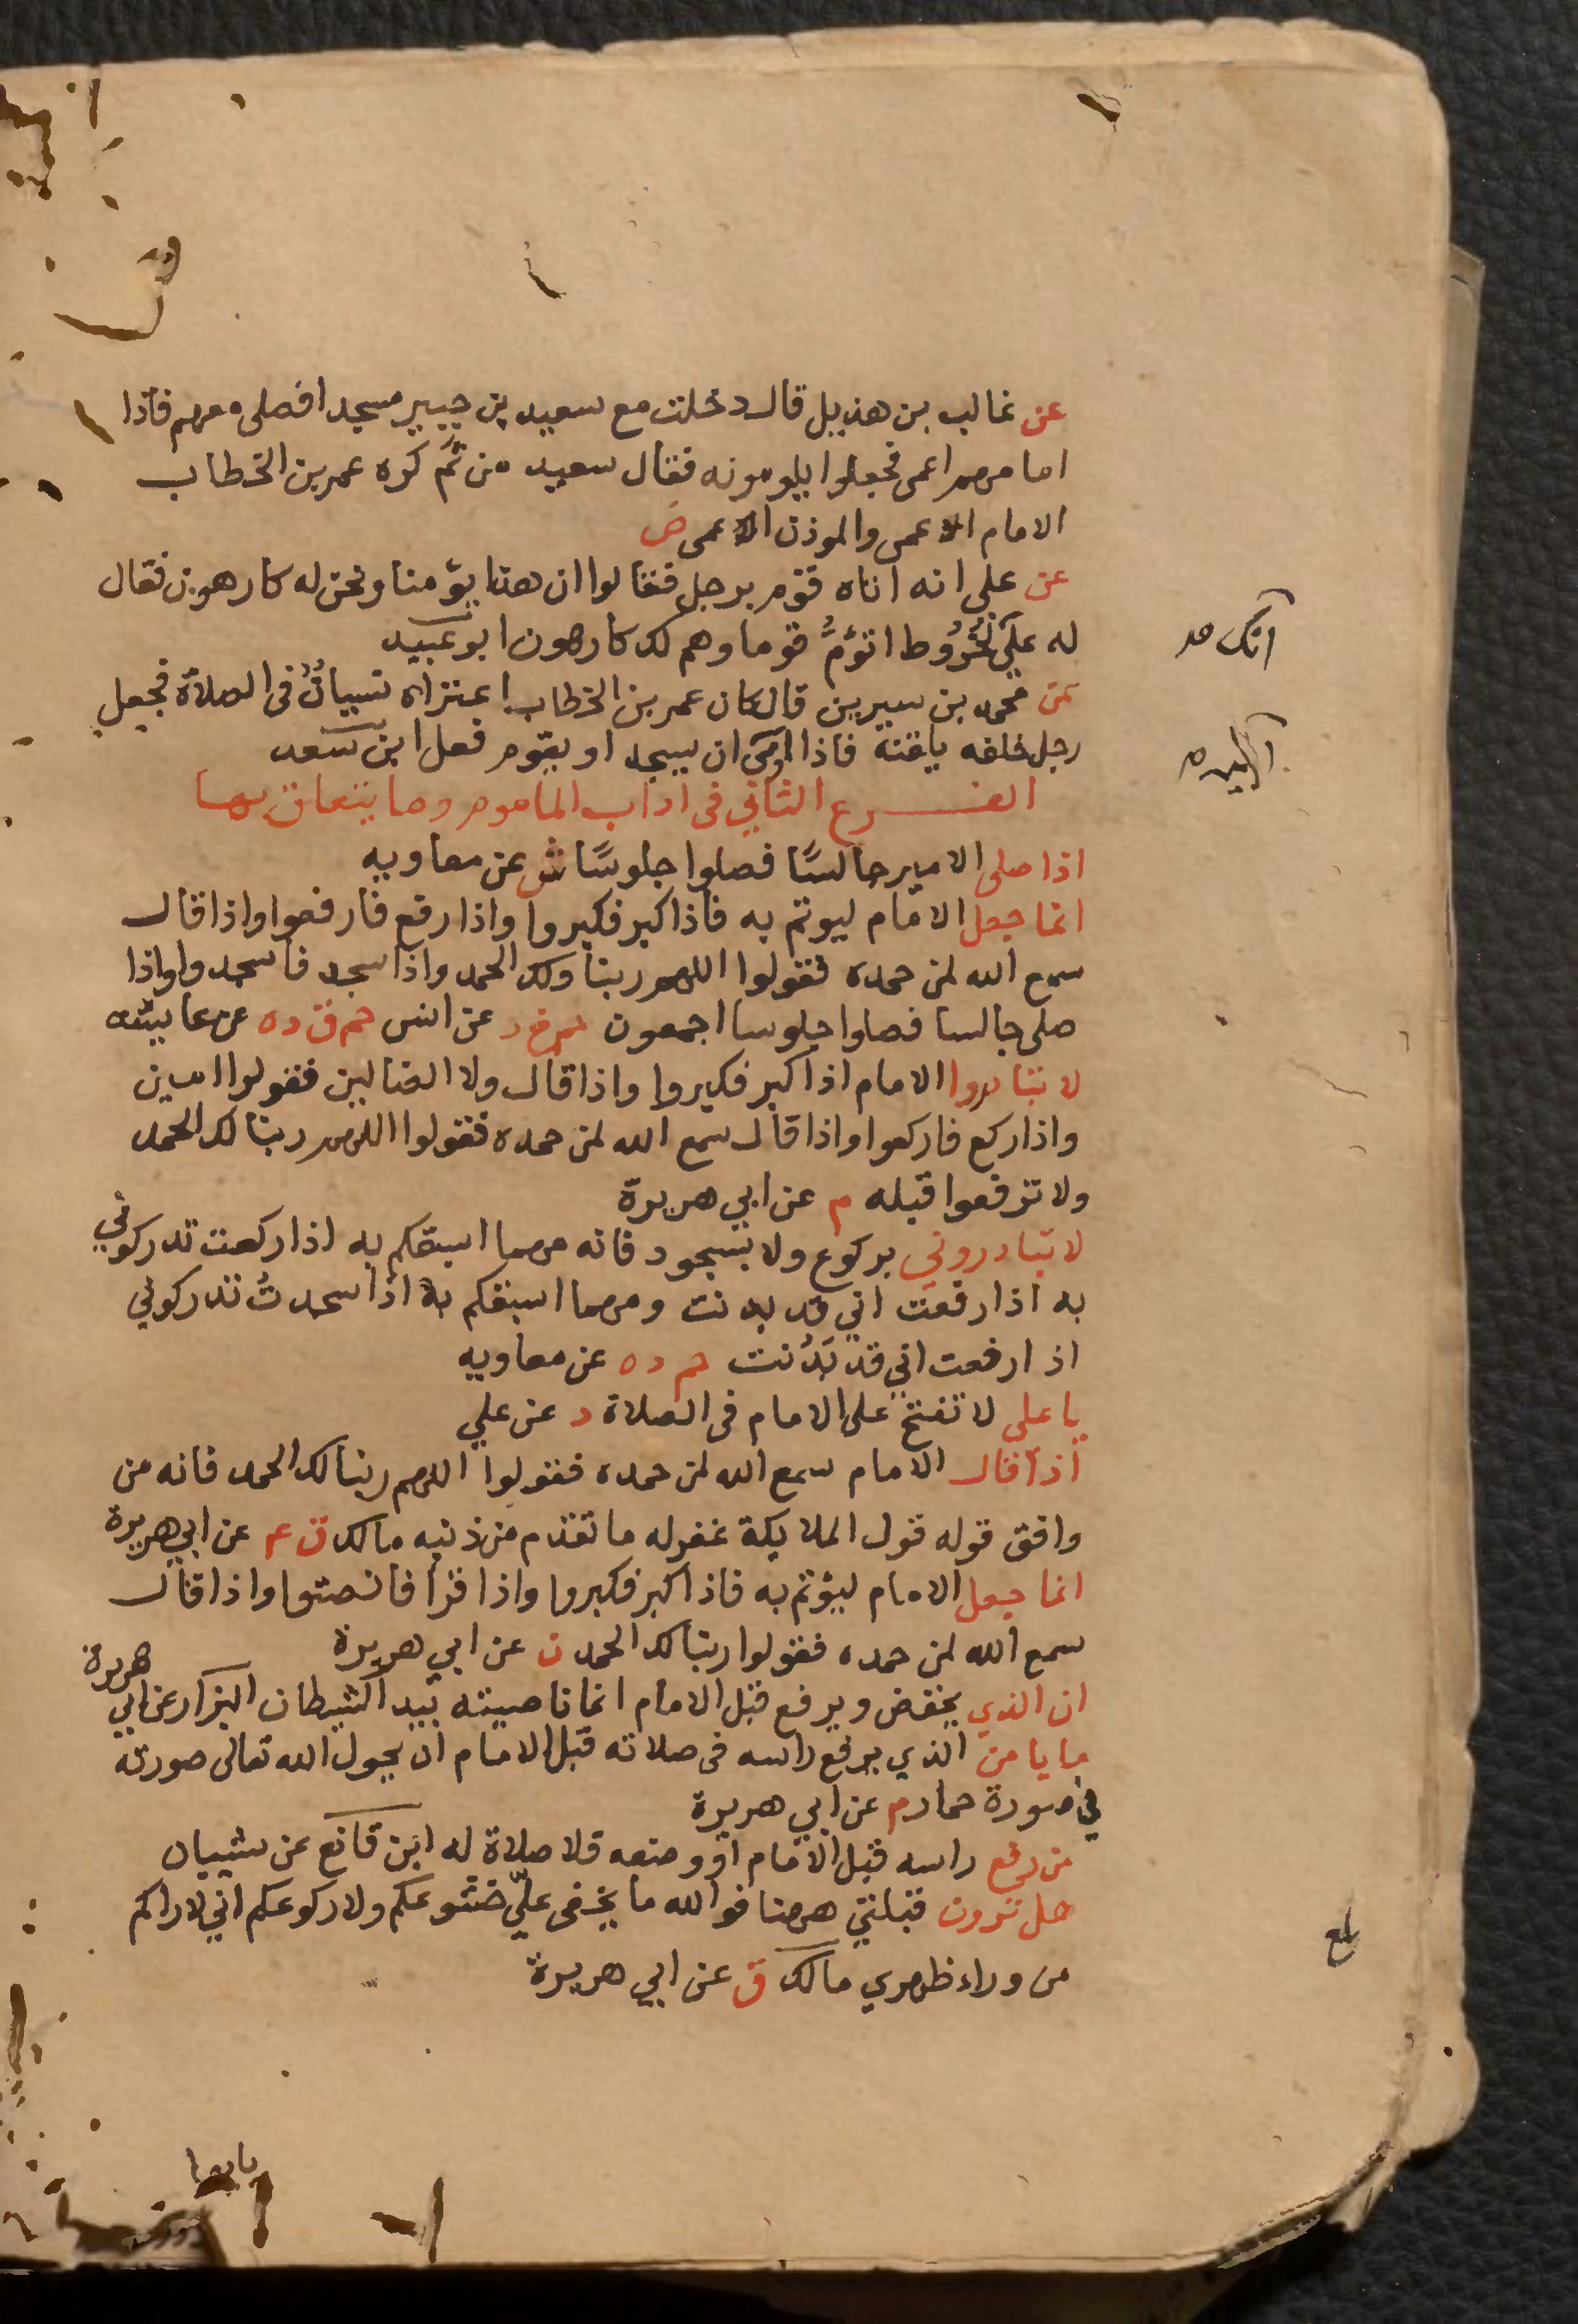 عن غالب بن هذيل قال دخلت مع سعيد بن جبير مسجدا فصلى معهم فاذا
امامهم اعمى فجعلوا يلومونه فقال سعيد من ثم كره عمر بن الخطاب
الامام الاعمى والموذن الاعمى ض
عن على انه اتاه قوم برجل فقالوا ان هذا يؤمنا ونحن له كارهون فقال
انك صح
له علي لخروط اتؤم قوما وهم لك كارهون ابو عبيد
عن محمد بن سيرين قال كان عمر بن الخطاب اعتراه نسيان فى الصلاة فجعل
رجل خلفه يلقنه فاذا اومى ان يسجد او يقوم فعل ابن سعد
الفرع الثاني فى اداب الماموم وما يتعلق بها
اذا صلى الامير جالسا فصلوا جلوسا ش عن معاويه
انما جعل الامام ليوتم به فاذا كبر فكبروا واذا رفع فارفعوا واذا قال
سمع الله لمن حمده فقولوا اللهم ربنا ولك الحمد واذا سجد فاسجدوا واذا
صلى جالسا فصلوا جلوسا اجمعون حم خ د عن انس حم ق د ه عن عايشه
لا تبادروا الامام اذا كبر فكبروا واذا قال ولا الضالين فقولوا امين
واذا ركع فاركعوا واذا قال سمع الله لمن حمده فقولوا اللهم ربنا لك الحمد
ولا ترفعوا قبله م عن ابي هريرة
لا تبادروني بركوع ولا بسجود فانه مهما اسبقكم به اذا ركعت تدركوني
به اذا رفعت اني قد بدنت ومهما اسبقكم به اذا سجدت تدركوني
اذا رفعت اني قد بدنت حم د ه عن معاويه
يا على لا تفتح على الامام فى الصلاة د عن علي
اذا قال الامام سمع الله لمن حمده فقولوا اللهم ربنا لك الحمد فانه من
وافق قوله قول الملايكة غفر له ما تقدم من ذنبه مالك ق عن ابي هريرة
انما جعل الامام ليؤتم به فاذا كبر فكبروا واذا قرأ فانصتوا واذا قال
سمع الله لمن حمده فقولوا ربنا لك الحمد ن عن ابي هريرة
ان الذي يخفض ويرفع قبل الامام انما ناصيته بيد الشيطان البزار عن ابي هريرة
ما يامن الذي يرفع راسه فى صلاته قبل الامام ان يحول الله تعالى صورته
في صورة حمار م عن ابي هريرة
من رفع راسه قبل الامام او وضعه فلا صلاة له ابن قانع عن شيبان
هل ترون قبلتي ههنا فوالله ما يخفى علي خشوعكم ولا ركوعكم اني لاراكم
من وراء ظهري مالك ق عن ابي هريرة
بلغ